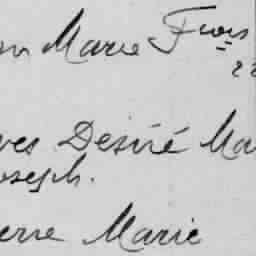 n Marie Frois
22
ves Desiré Ma
oseph.
erre Marie